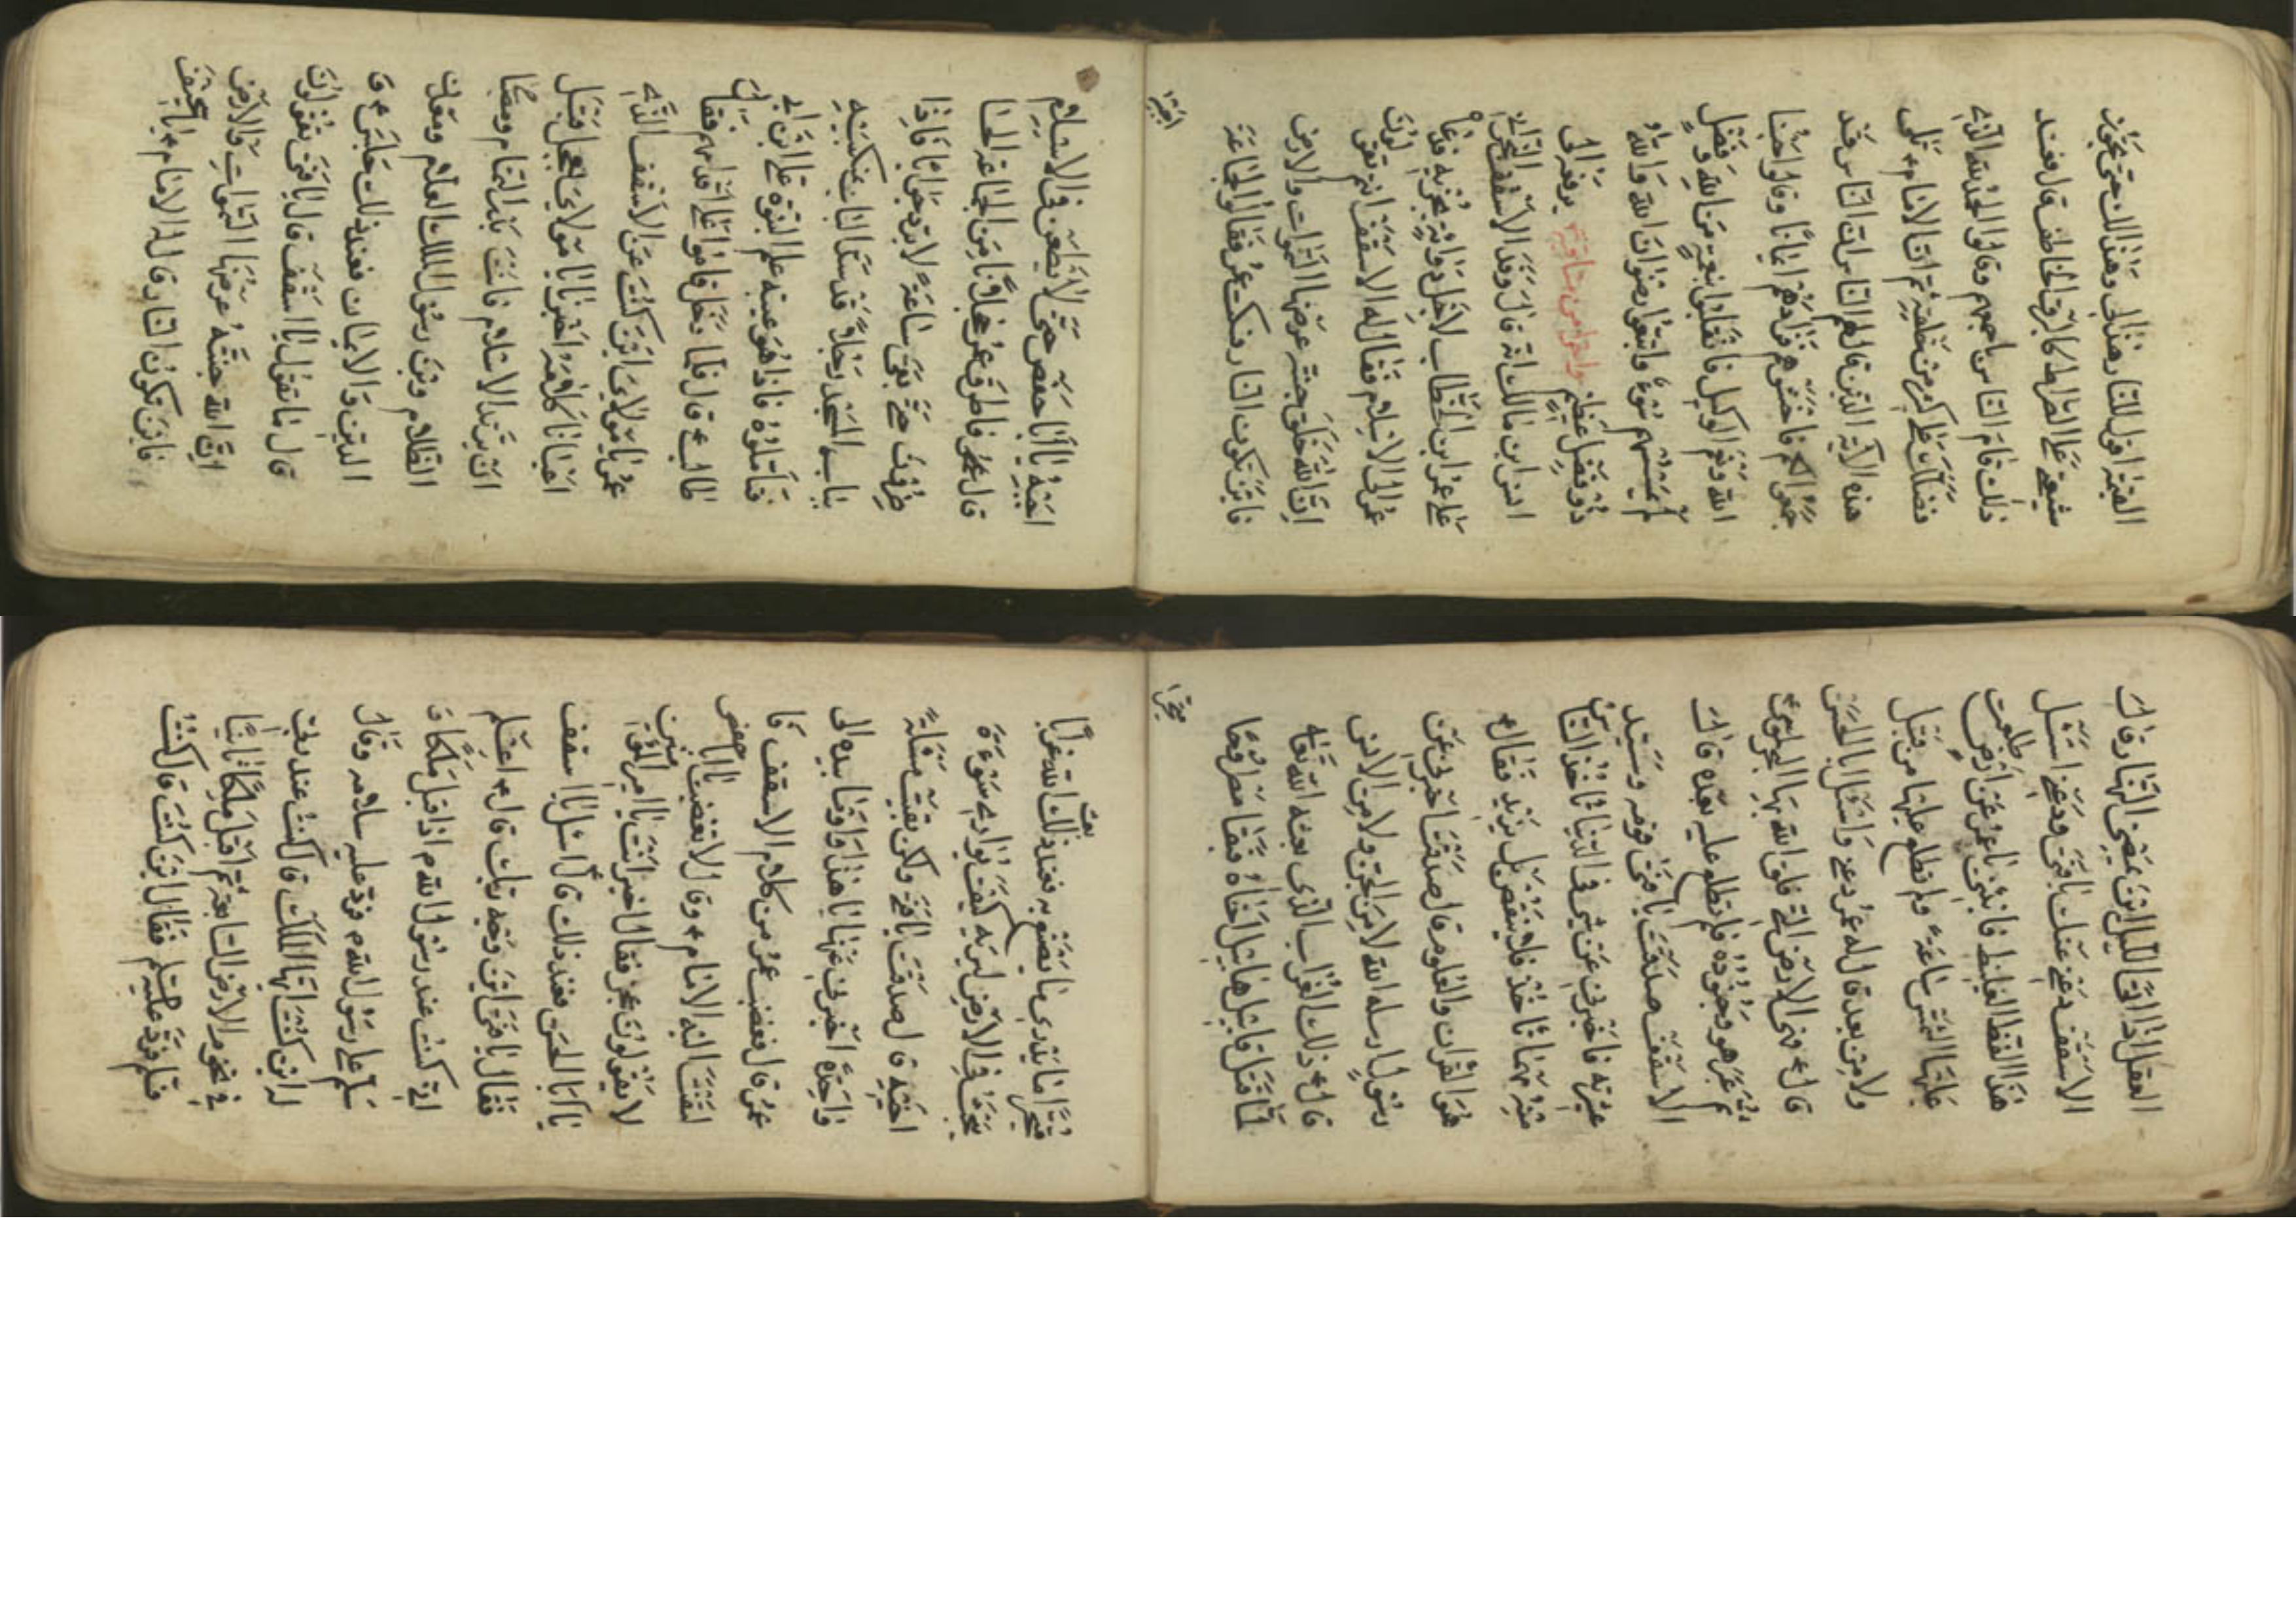 القيمة اقول للنار هذا لي وهذا لك حتى يجوز
شيعتي على الصراط كالبرق الخاطف قال فعند
ذلك قام الناس باجمعهم وقالوا الحمد لله الذي
فضلك على كثير من خلقه ثم ان الامام ع تلى
هذه الآية الذين قال لهم الناس ان الناس قد
جمعوا لكم فاخشوهم فزادهم ايمانا وقالوا حسبنا
الله ونعم الوكيل فانقلبوا بنعمة من الله وفضل
لم يمسسهم سوء واتبعوا رضوان الله والله
ذو فضل عظيم واخرى من مناقبه يرفعه الى
انس ابن مالك انه قال وفد الاسقف النجراني
على عمر ابن الخطاب لاجل بجزيه فدعا
عمر الى الاسلام فقال له الاسقف انتم تقولون
ان الله خلق جنة عرضها السموات والارض
فاين تكون النار فسكت عمر فقالوا الجماعة
اجبه
اجبه يا ابا حفص حتى لا يطعن في الاسلام
قال عمر فاطرق خجلا من الجماعة
طرفه حتى بقى ساعة لا يرد جوابا فاذا
بباب المسجد رجلا قد سد الباب بمنكبيه
فتاملوه فاذا هو عيبة علم النبوة علي ابن ابي
طالب ع قال فلما دخل قاموا على اقدامهم فقال
عمر يا مولاي اين كنت عن الاسقف الذي
اعيانا كلامه اخبره يا مولاي بالعجل قبل
انه يرتد الاسلام فانت بدر التمام ومصباح
الظلام وابن رسول الملك العلام ومعدن
الدين والايمان فعند ذلك جلس ع و
قال ما تقول يا اسقف قال يا فتى تقولون
ان الله جنته عرضها السموات والارض
فاين تكون النار قال له الامام ع يا نحيف
العقل اذا اتى الليل اين يمضي النهار قال
الاسقف دعني عنك يا فتى ودعني اسئل
هذا الفظ الغليظ فانبئني يا عمر عن ارض طلعت
عليها الشمس ساعة ولم تطلع عليها من قبل
ولا من بعد قال له عمر دعني واسئل ابا الحسن
قال ع وهى الارض التي فلق الله بها البحر لموسى
ثم عبر هو وجنوده فلم تطلع عليه بعده قال
الاسقف صدقت يا فتى قومه وسيد
عشيرته فاخبرني عن شيء في الدنيا تاخذ الناس
منه مهما اخذ فلا ينقص بل يزيد فقال ع
هو القران والعلوم قال صدقت اخبرني عن
رسول ارسله الله لا من الجن ولا من الانس
قال ع ذلك الغراب الذي بعثه الله تعالى
لما قتل قابيل هابيل اخاه فبقا مطروحا
متحيرا
متحيرا ما يدري ما يصنع به فعند ذلك بعث الله غرابا
يبحث في الارض ليريه كيف يواري سوءة
اخيه قال صدقت يا فتى ولكن بقيت مسئلة
واحدة اخبرني عنها هذا واوما بيده الى
عمر قال فغضب عمر من كلام الاسقف فا
لتفت اليه الامام ع وقال لا تغضب يا ابا حفص
لا يقولون عجز فقال اخبر انت يا امير المؤمنين
يا ابا الحسن فعند ذلك قال اسئل يا اسقف
فقال يا فتى اين وجه ربك قال ع اعلم
اني كنت عند رسول الله ص اذ اقبل ملكا و
سلم على رسول الله ص فرد عليه سلامه وقال
له اين كنت ايها الملك قال كنت عند ربي
في تخوم الارض السابعة ثم اقبل ملكا ثانيا
فسلم فرد عليه فقال اين كنت قال كنت